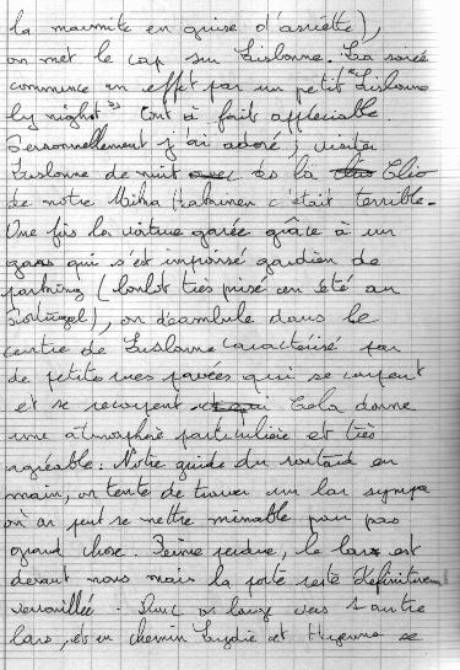 la marmite en guise d'assiette),
on met le cap sur Lisbonne. La soirée
commence en effet par un petit "Lisbonne
by night" tout à fait appréciable.
Personnellement j'ai adoré; visiter
Lisbonne de nuit ds la Clio
de notre Mika Hakkinen c'était terrible.
Une fois la voiture garée grâce à un
gars qui s'est improvisé gardien de
parking (boulot très prisé en été au
Portugal), on déambule dans le
centre de Lisbonne caractérisé par
de petites rues pavées qui se coupent
et se recoupent. Cela donne
une atmosphère particulière et très
agréable. Notre guide du routard en
main, on tente de trouver un bar sympa
où on peut se mettre minable pour pas
grand chose. Peine perdue, le bar est
devant nous mais la porte reste définitivem
verrouillée. Donc on bouge vers d'autre
bars, et en chemin Lydie et se